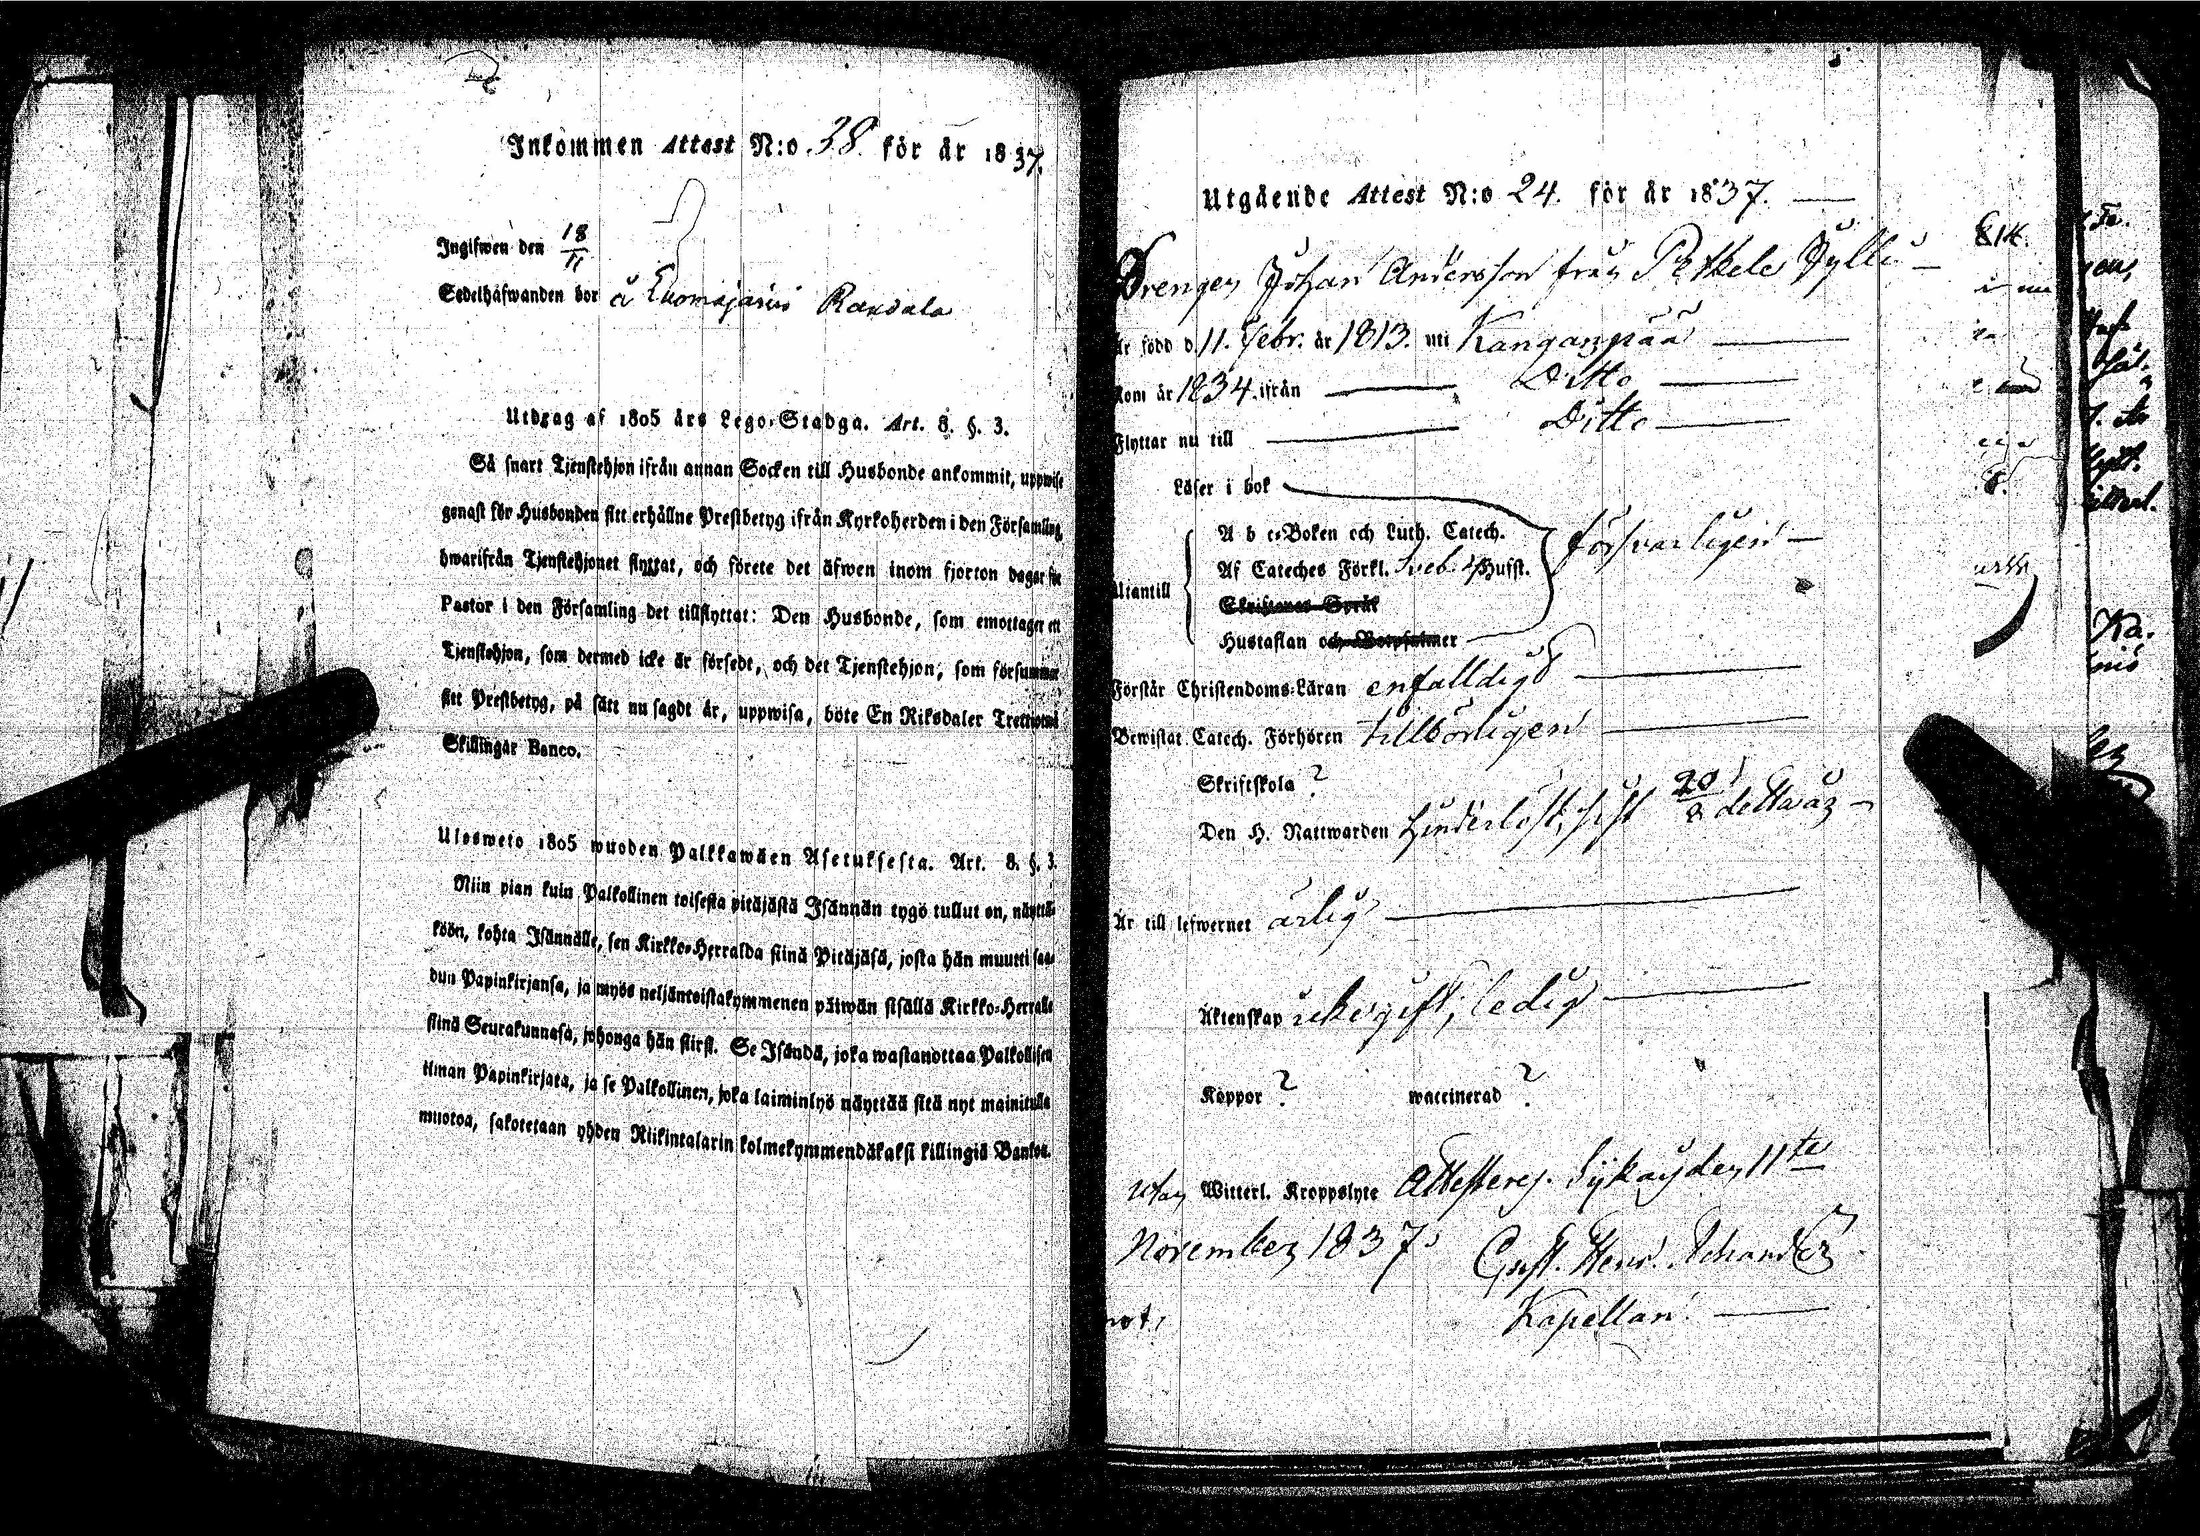 Inkommen Attest N:o 38. för år 1837.
Ingifwen den 18/11
Sedelhafwanden bor å Raudala
Utdrag af 1805 års Lego-Stadga. Art. 8. §. 3.
Så snart Tjenstehjon ifrån annan Socken till Husbonde ankommit, uppwise
genast för Husbonden sitt erhållne Prestbetyg ifrån Kyrkoherden i den Församling,
hwarifrån Tjenstehjonet flyttat, och förete det äfwen inom fjorton dagar för
Pastor i den Församling det tillflyttat: Den Husbonde, som emottager ett
Tjenstehjon, som dermed icke är försedt, och det Tjenstehjon, som försummar
sitt Prestbetyg, på sätt nu sagdt är, uppwisa, böte En Riksdaler Trettiotwå
Skillingar Banco.
Ulosweto 1805 wuoden Palkkawäen Asetuksesta. Art. 8. §. 3.
Niin pian kuin Palkollinen toisesta pitäjästä Isännän tygö tullut on, näyttä-
köön, kohta Isännälle, sen Kirkko-Herralda siinä Pitäjäsä, josta hän muutti saa-
dun Papinkirjansa, ja myös neljäntoistakymmenen päiwän sisällä Kirkko-Herralle
siinä Seurakunnasa, johonga hän siirsi. Se Isändä, joka wastanottaa Palkollisen
ilman Papinkirjata, ja se Palkollinen, joka laiminlyö näyttää sitä nyt mainitulla
muotoa, sakotetaan yhden Riikintalarin kolmekymmendäkaksi killingiä Bankos.
Utgående Attest N:o 24. för år 1837.
Drengen Johan Andersson från Petkele Jylli
Är född d. 11. Febr. år 1813. uti Kanganpää
Kom år 1834. ifrån Ditto
Flyttar nu till Ditto
Läser i bok
A b c-Boken och Luth. Catech. försvarligen
Af Cateches Förkl. Sveb. Hufst.
Utantill
Skriftenes Språk
Hustaflan och Botpsalmer
Förstår Christendoms-Läran enfalldigt
Bewistat Catech. Förhören tillbörligen
Skriftskola ?
Den H. Nattwarden hinderlöst, sist 20/8 detta år
Är till lefwernet ärlig
Äktenskap icke gift, ledig
Koppor ? waccinerad ?
utan Witterl. Kroppslyte Attesteras. den 11te
November 1837. Gust. Henr.
Kapellan